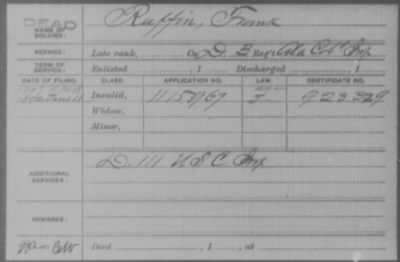 DEAD
NAME OF SOLDIER: Ruffin, Frank
SERVICE: Late rank, Co. D, 3 Reg't Ala Col'd Inf.
TERM OF SERVICE: Enlisted , 1 Discharged , 1
DATE OF FILING. CLASS. APPLICATION NO. LAW. CERTIFICATE NO.
Invalid, 1115969 923329
Widow,
Minor,
ADDITIONAL SERVICES: D. 111 U S C Inf
REMARKS:
Died , 1 , at